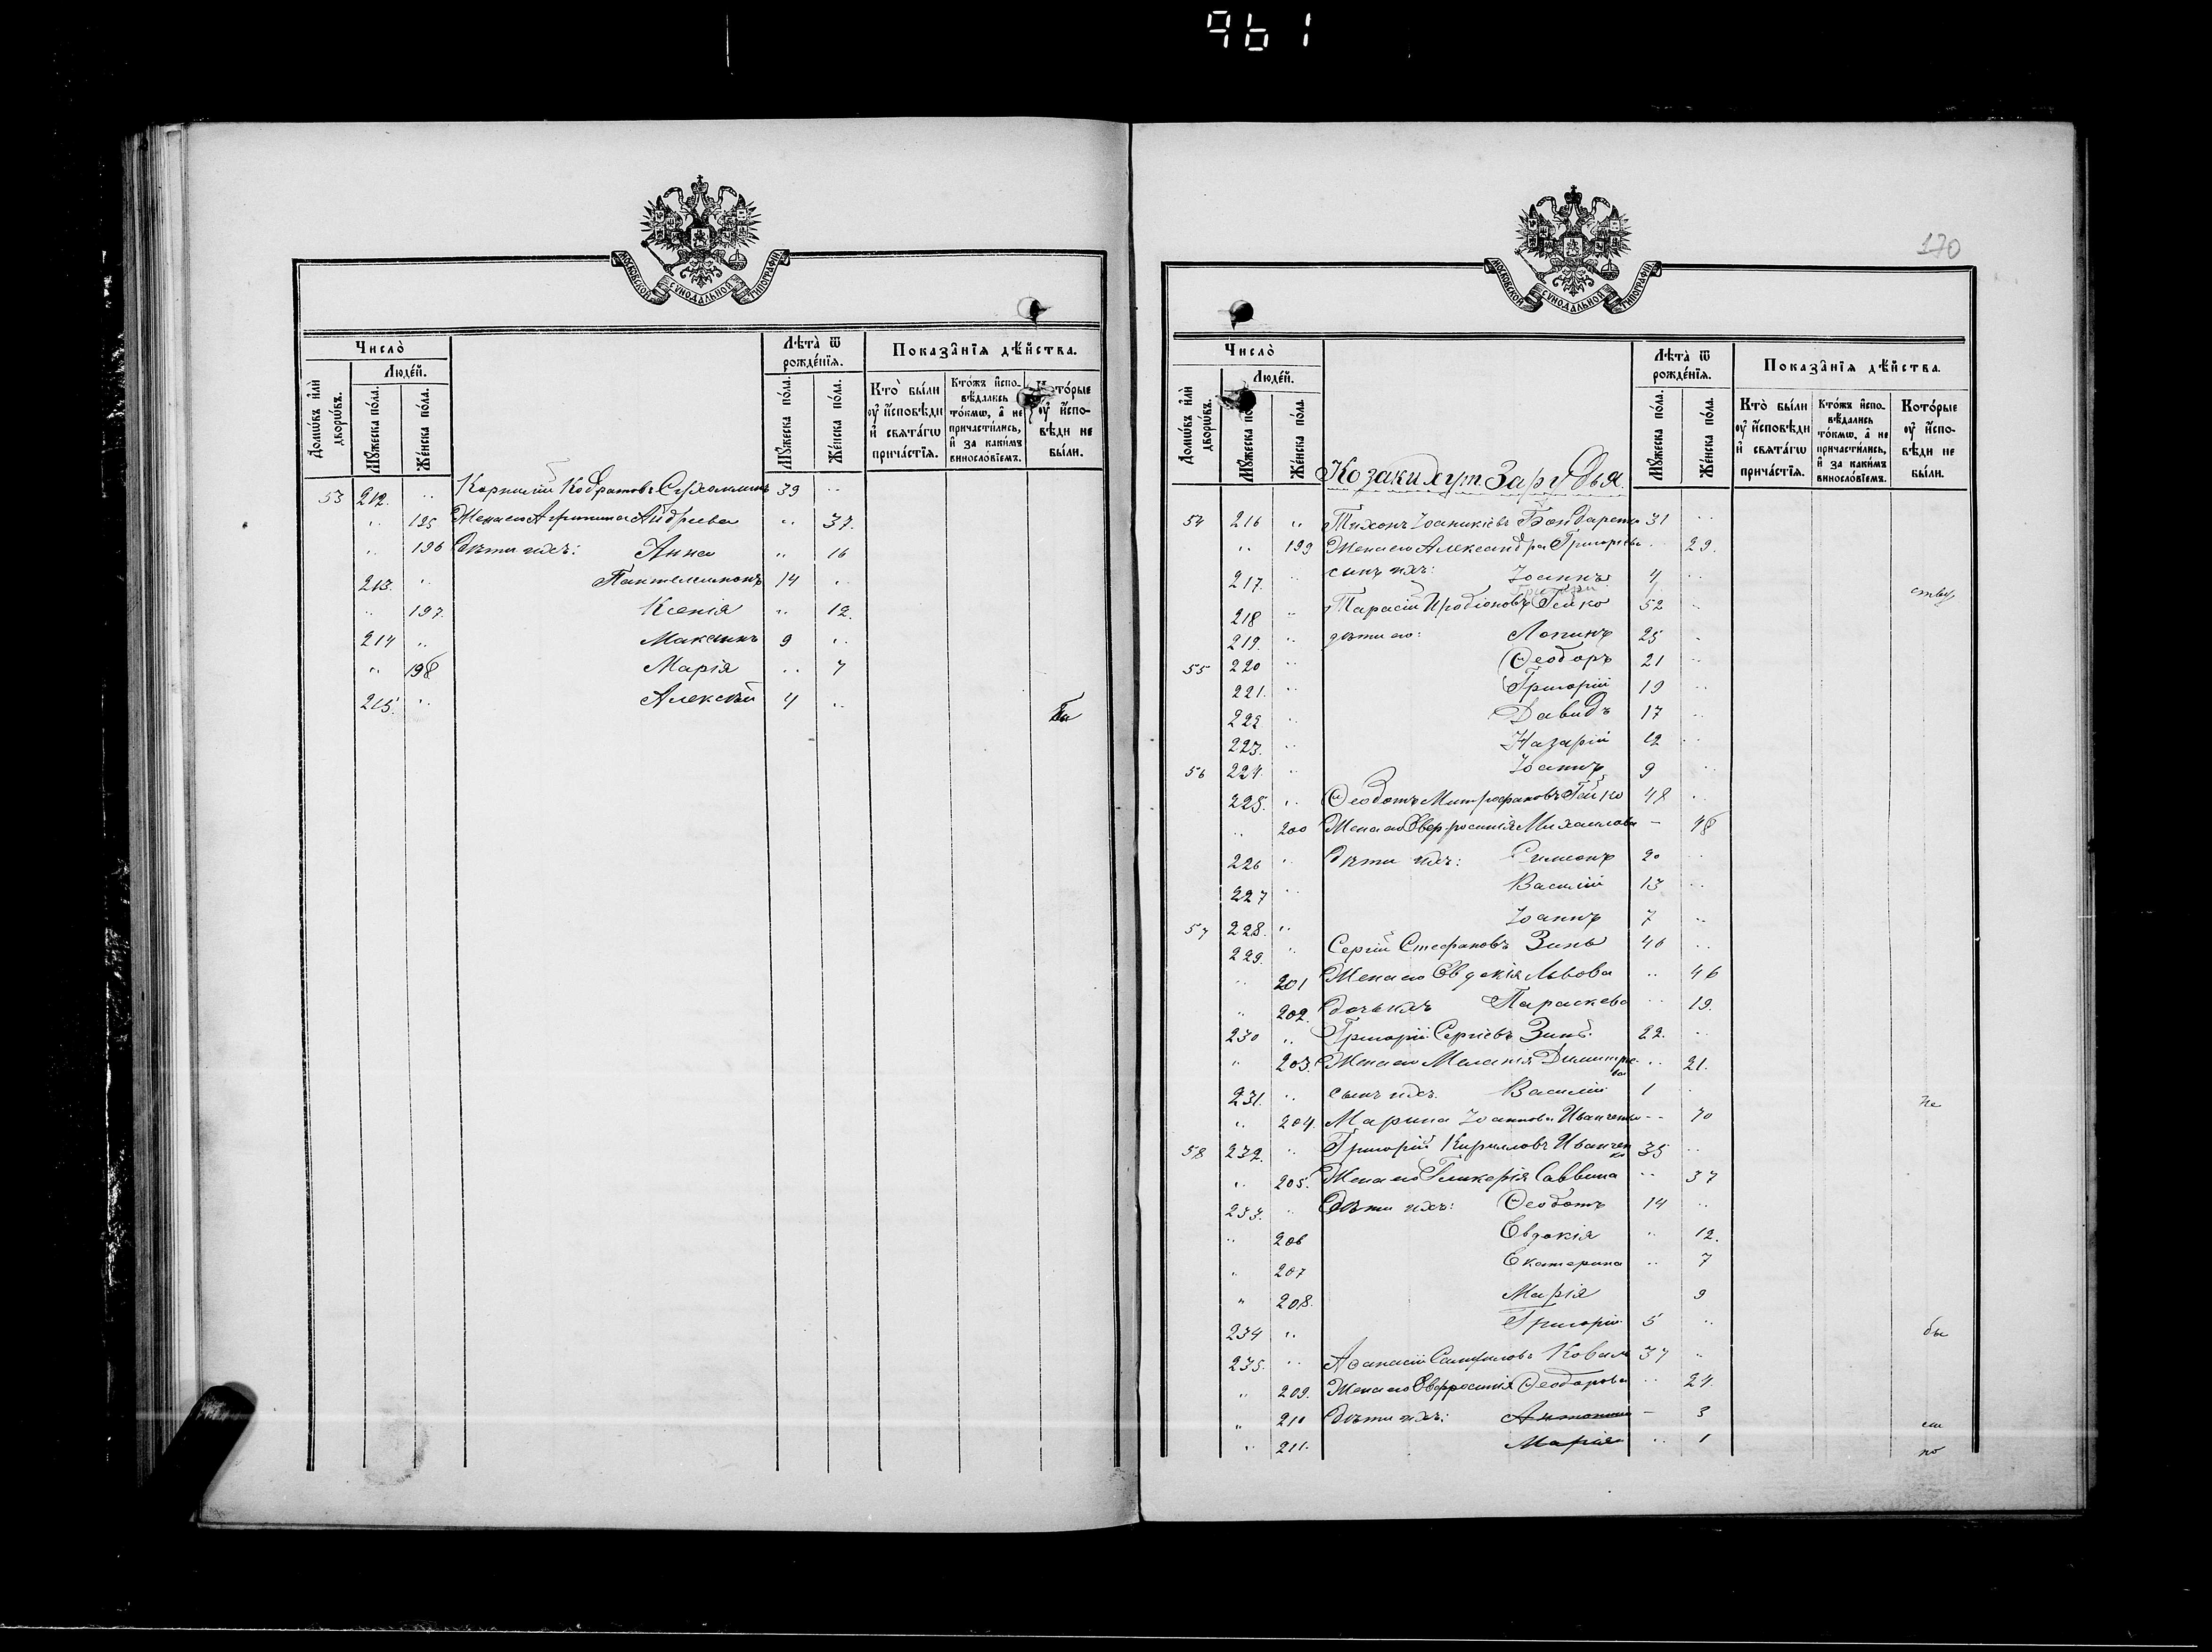 961
МОСКОВСКОЙ СѴНОДАЛЬНОЙ ТИПОГРАФІИ
Число̀
Люде́й.
Домѡ́въ и҆лѝ дворѡ́въ.
Мꙋ́жеска по́ла.
Же́нска по́ла.
Лѣ́та ѿ рожде́нїѧ.
Мꙋ́жеска по́ла.
Же́нска по́ла.
Показа̂нїѧ дѣ́йства.
Кто̀ бы́ли оу҆ и҆́сповѣди и҆ свѧта́гѡ прича́стїѧ.
Кто́жъ и҆спо-вѣ́дались то́кмѡ, а҆ не причасти́лись, и҆ за каки́мъ винослові́емъ.
Кото́рые оу҆ и҆́спо-вѣди не бы́ли.
53 212. " Корнилій Кодратовъ 39 "
" 195 Жена его Агрипина Андреева " 37.
" 196 Дѣти ихъ: Анна " 16
213. " Пантелеимонъ 14 "
" 197. Ксенія " 12.
214 " Максимъ 9 "
" 198 Марія " 7
215. " Алексѣй 4 "
170
МОСКОВСКОЙ СѴНОДАЛЬНОЙ ТИПОГРАФІИ
Число̀
Люде́й.
Домѡ́въ и҆лѝ дворѡ́въ.
Мꙋ́жеска по́ла.
Же́нска по́ла.
Лѣ́та ѿ рожде́нїѧ.
Мꙋ́жеска по́ла.
Же́нска по́ла.
Показа̂нїѧ дѣ́йства.
Кто̀ бы́ли оу҆ и҆́сповѣди и҆ свѧта́гѡ прича́стїѧ.
Кто́жъ и҆спо-вѣ́дались то́кмѡ, а҆ не причасти́лись, и҆ за каки́мъ винослові́емъ.
Кото́рые оу҆ и҆́спо-вѣди не бы́ли.
Козаки хут. Зарудья
54 216 " Тихонъ Іоаникіевъ Бондаренко 31 "
" 199 Жена его Александра Григорьева " 29.
217. " сынъ ихъ: Іоаннъ 4 "
218 " Тарасій Иродіоновъ Гейко 52 "
219. " дѣти его: Логинъ 25 "
55 220 " Ѳеодоръ 21 "
221. " Григорій 19 "
222 " Давидъ 17 "
223. " Назарій 12 "
56 224. " Іоаннъ 9 "
225. " Ѳеодотъ Митрофановъ Гейко 48 "
" 200 Жена его Евфросинія Михаилова - 48
226 " Дѣти ихъ: Симеонъ 20 "
227 " Василій 13 "
57 228. " Іоаннъ 7 "
229. " Сергій Стефановъ Зинь 46 "
" 201 Жена его Евдокія Львова " 46
" 202. Дочь ихъ Параскева " 19.
230 " Григорій Сергіевъ Зинь 22. "
" 203. Жена его Меланія Димитріева " 21.
231. " сынъ ихъ. Василій 1 " не
" 204. Марина Іоаннова Иванченко -- 70
58 232. " Григорій Кириловъ Иванченко 35 "
" 205. Жена его Гликерія Саввина " 37
233. " Дѣти ихъ: Ѳеодотъ 14 "
" 206 Евдокія " 12.
" 207 Екатерина " 7
" 208. Марія 9
234 " Григорій 5 " бы
235. " Аѳанасій Самуиловъ Коваль 37 "
" 209. Жена его Евфросинія Ѳеодорова " 24.
" 210 Дѣти ихъ: Антонина - 3
" 211. Марія " 1 по